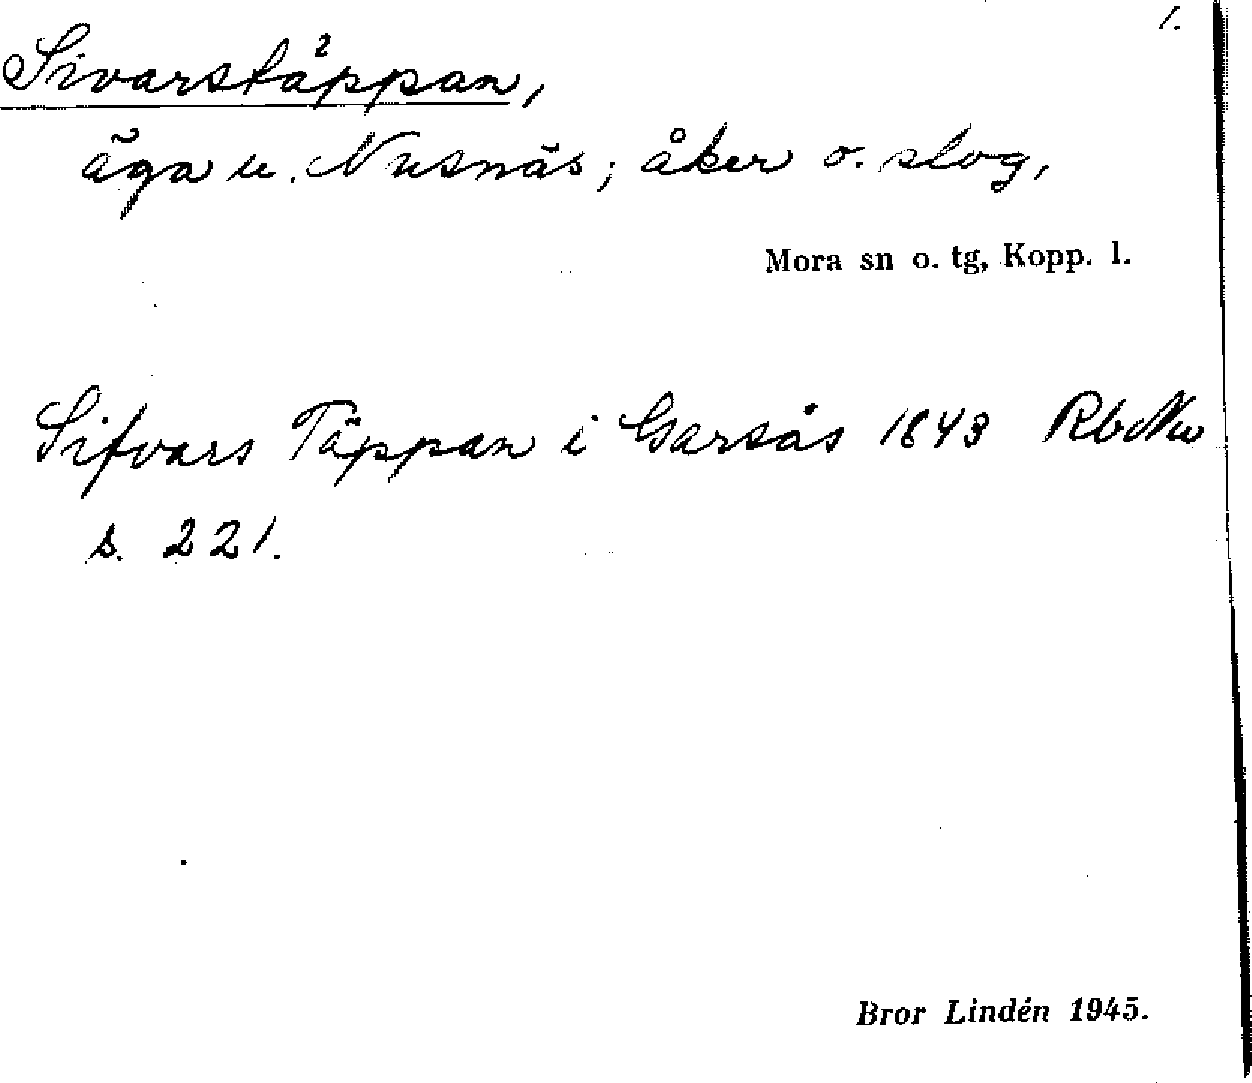 1.
Sivarstäppan,
äga u. Nusnäs; åker o. slog,
Mora sn o. tg, Kopp. l.
Sifvars Täppan i Garsås 1843 RbNu
s. 221.
Bror Lindén 1945.